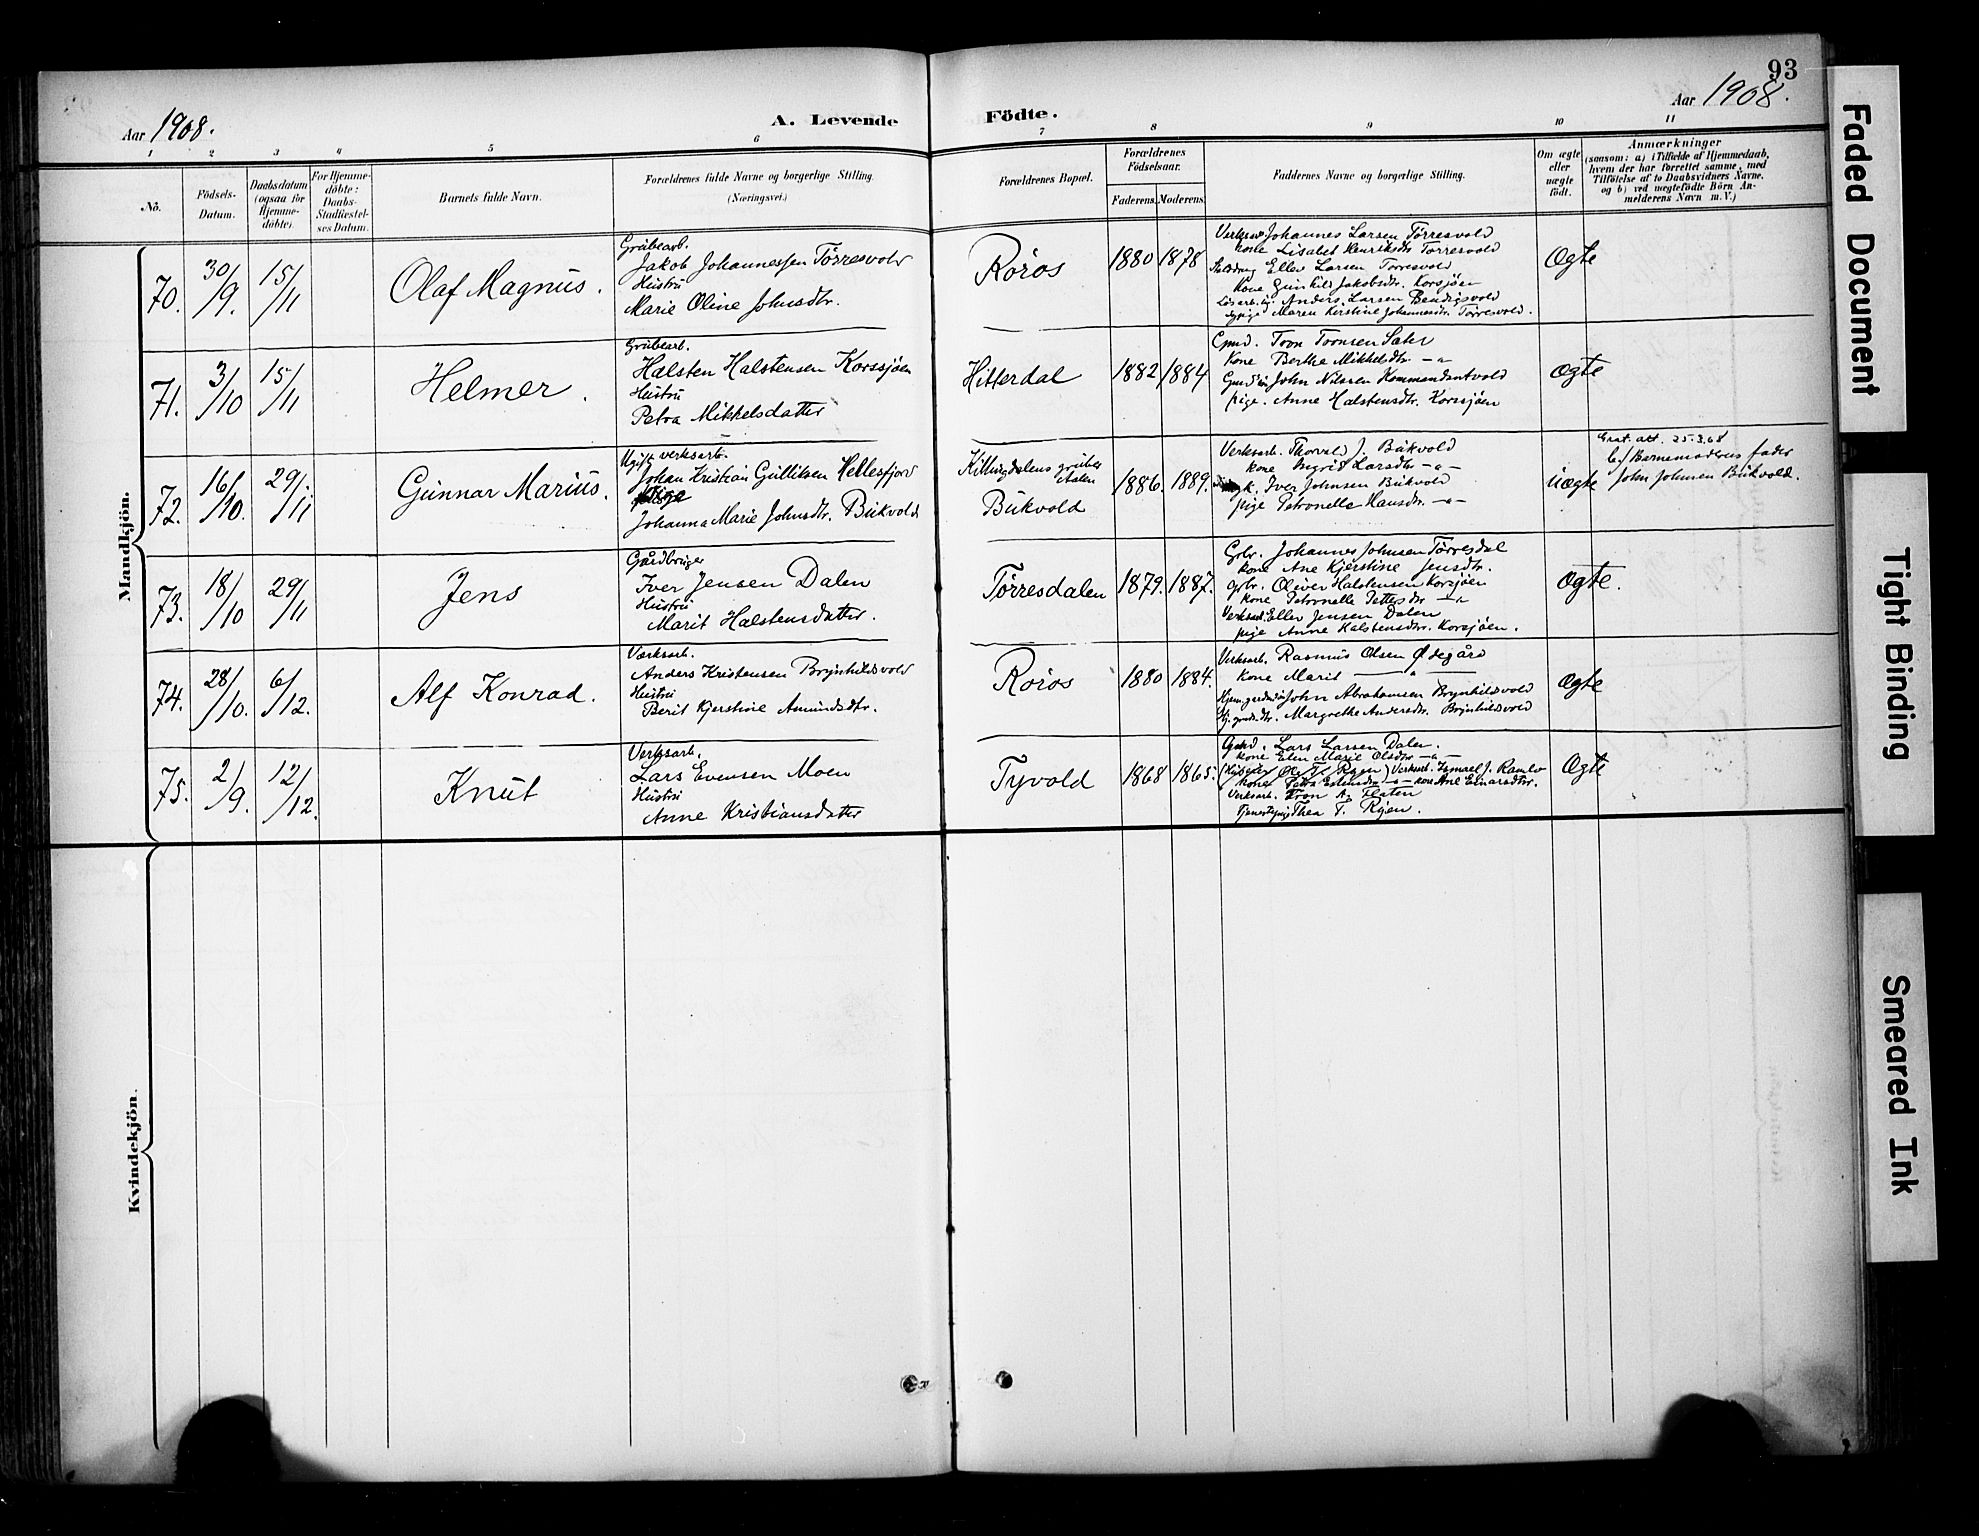 93
Aar 1908.
A. Levende
Födte.
Aar 1908.
1 2 3 4 5 6 7 8 9 10 11
No.
Födsels-Datum.
Daabsdatum (ogsaa for Hjemme-döbte).
For Hjemme-döbte: Daabs-Stadfæstel-ses Datum.
Barnets fulde Navn.
Forældrenes fulde Navne og borgerlige Stilling.
(Næringsvei.)
Forældrenes Bopæl.
Forældrenes Födselsaar.
Faderens. Moderens.
Faddernes Navne og borgerlige Stilling.
Om ægte eller uægte født.
Anmærkninger
(saasom: a) i Tilfælde af Hjemmedaab,
hvem der har forrettet samme, med
Tilföielse af to Daabsvidners Navne,
og b) ved uægtefödte Börn An-
melderens Navn m. V.)
Mandkjön.
70. 30/9. 15/11 Olaf Magnus.
Grubearb.
Jakob Johannessen Tørresvold
Hustru
Marie Oline Johnsdtr.
Røros 1880 1878
Johannes Larsen Tørresvold
kone Lisabet Henriksdtr Tørresvold
Ellev Larsen Tørresvold
Kone Gunhild Jakobsdtr. Korsjøen
Anders Larsen Bendigsvold
pige Maren Kirstine Johannesdtr. Tørresvold.
Ægte
71. 3/10 15/11 Helmer.
Grubearb.
Halsten Halstensen Korssjøen
Hustru
Petra Mikkelsdatter
Hitterdal 1882 1884
Gmd. Tron Tronsen Sæter
Kone Berthe Mikkelsdtr. —"—
John Nilssen Kommandantvold
pige. Anne Halstensdtr. Korssjøen
Ægte
72. 16/10. 29/11 Gunnar Marius.
Ugift verksarb.
Johan Kristian Gulliksen Hellesfjord
Pige
Johanna Marie Johnsdtr. Bukvold
Killingdalens gruber
Aalen
Bukvold
1886. 1889.
Verksarb. Thorvald J. Bukvold
kone Ingrid Larsdtr —"—
Iver Johnsen Bukvold
pige Petronelle Hansdtr. —"—
Uægte
att. 25.3.68
Barnemoderens fader
John Johnsen Bukvold.
73. 18/10 29/11 Jens
Gårdbruger
Iver Jensen Dalen
Hustru
Marit Halstensdatter.
Tørresdalen 1879. 1887.
Grbr. Johannes Johnsen Tørresdal
kone Ane Kjerstine Jensdtr.
Grbr. Oliver Halstensen Korsjøen
kone Petronelle Pettersdtr —"—
Verksarb. Ellev Jensen Dalen
pige Anne Halstensdtr. Korsjøen.
Ægte.
74. 28/10. 6/12. Alf Konrad.
Værksarb.
Anders Kristensen Brynhildsvold
Hustru
Berit Kjerstine Amundsdtr.
Røros 1880 1884.
Verksarb. Rasmus Olsen Ødegård
kone Marit —"—
John Abrahamsen Brynhildsvold
Margrethe Andersdtr. Brynhildsvold
Ægte
75. 2/9. 12/12. Knut
Verksarb.
Lars Evensen Moen
Hustru
Anne Kristiansdatter
Tyvold 1868 1865.
Gmd. Lars Larsen Dalen.
kone Elen Marie Olsdtr —"—
Ole T. Ryen) Verksarb. Ismael J. Ramlo
kone Petra Estensdtr —"— kone Ane Einarsdtr.
Verksarb. Tron A. Flaten
Tjenestepige Thea T. Ryen.
Ægte
Kvindekjön.
Faded Document
Tight Binding
Smeared Ink